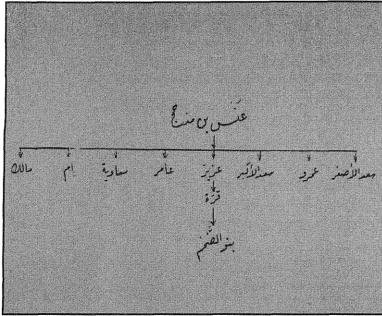 عَنْس بن مذحج
سعد الأصغر عمرو سعد الأكبر عزيز عامر معاوية يام مالك
قرّة